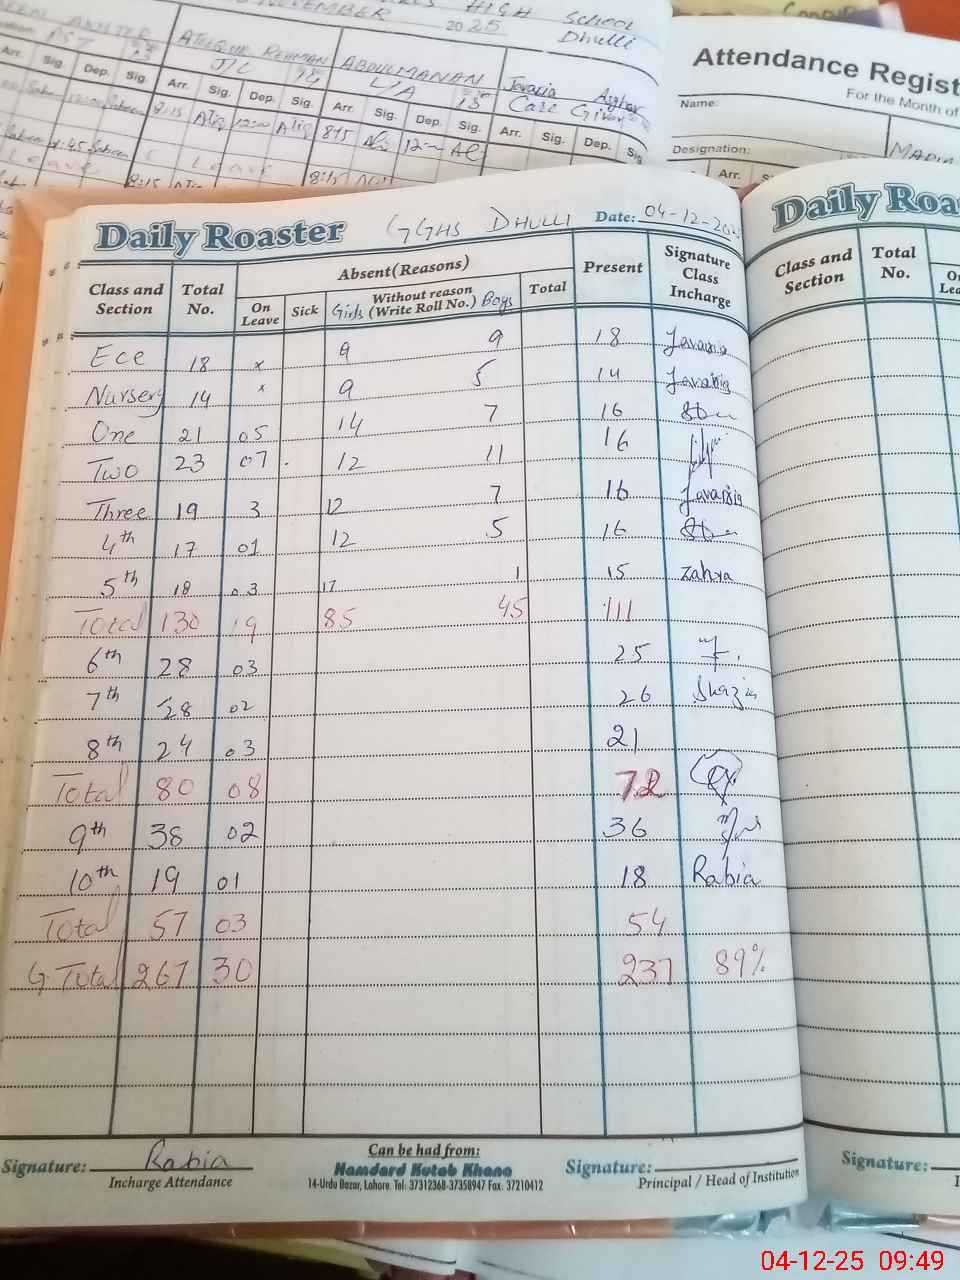 HIGH School
NOVEMBER 2025 Dhulli
ATEEQUR REHMAN ABDULMANAN Javaria Asghar
J/C L/A Care Giver
Arr. Sig. Dep. Sig. Arr. Sig. Dep. Sig. Arr. Sig. Dep. Sig. Arr. Sig. Dep. Sig
8:15 12:00 8:15
Leave Leave
8:15 8:15
Attendance Regist
For the Month of
Name:
Designation:
Arr.
Daily Roaster GGHS DHULLI Date: 04-12-202
Class and Section Total No. Absent (Reasons) Present Signature Class Incharge
On Leave Sick Girls Without reason (Write Roll No.) Boys Total
Ece 18 x 9 9 18 Javaria
Nursery 14 x 9 5 14 Javaria
One 21 05 14 7 16
Two 23 07 12 11 16
Three 19 3 12 7 16 Javaria
4th 17 01 12 5 16
5th 18 03 17 1 15 Zahra
Total 130 19 85 45 111
6th 28 03 25
7th 28 02 26 Shazia
8th 24 03 21
Total 80 08 72
9th 38 02 36
10th 19 01 18 Rabia
Total 57 03 54
G.Total 267 30 237 89%
Signature: Rabia
Incharge Attendance
Can be had from:
Hamdard Kutab Khana
14-Urdu Bazar, Lahore. Tel: 37312368-37358947 Fax: 37210412
Signature:
Principal / Head of Institution
Daily Roa
Class and Section Total No. On Lea
Signature:
04-12-25 09:49